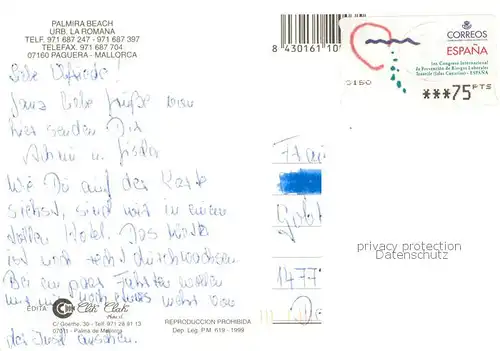 PALMIRA BEACH
URB. LA ROMANA
TELF. 971 687 247 - 971 687 397
TELEFAX. 971 687 704
07160 PAGUERA - MALLORCA
8 430161 10
CORREOS
ESPAÑA
1er. Congreso Internacional
de Prevención de Riesgos Laborales
Tenerife (Islas Canarias) - ESPAÑA
***75 PTS
Liebe
Ganz liebe Grüße von
hier senden Dir
Achim u. Gisela
Wie Du auf der Karte
siehst, sind wir in einem
tollen Hotel. Das Wetter
ist noch recht durchwachsen
Bei ein paar Fahrten werden
wir noch etwas mehr von
der Insel ansehen.
privacy protection
Datenschutz
1477
EDITA
Clik Clak
C/ Goethe, 30 - Telf. 971 28 81 13
07011 - Palma de Mallorca
REPRODUCCION PROHIBIDA
Dep. Leg. P.M. 619 - 1999